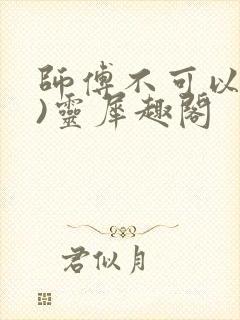 師傅不可以
)靈犀趣閣
君似月